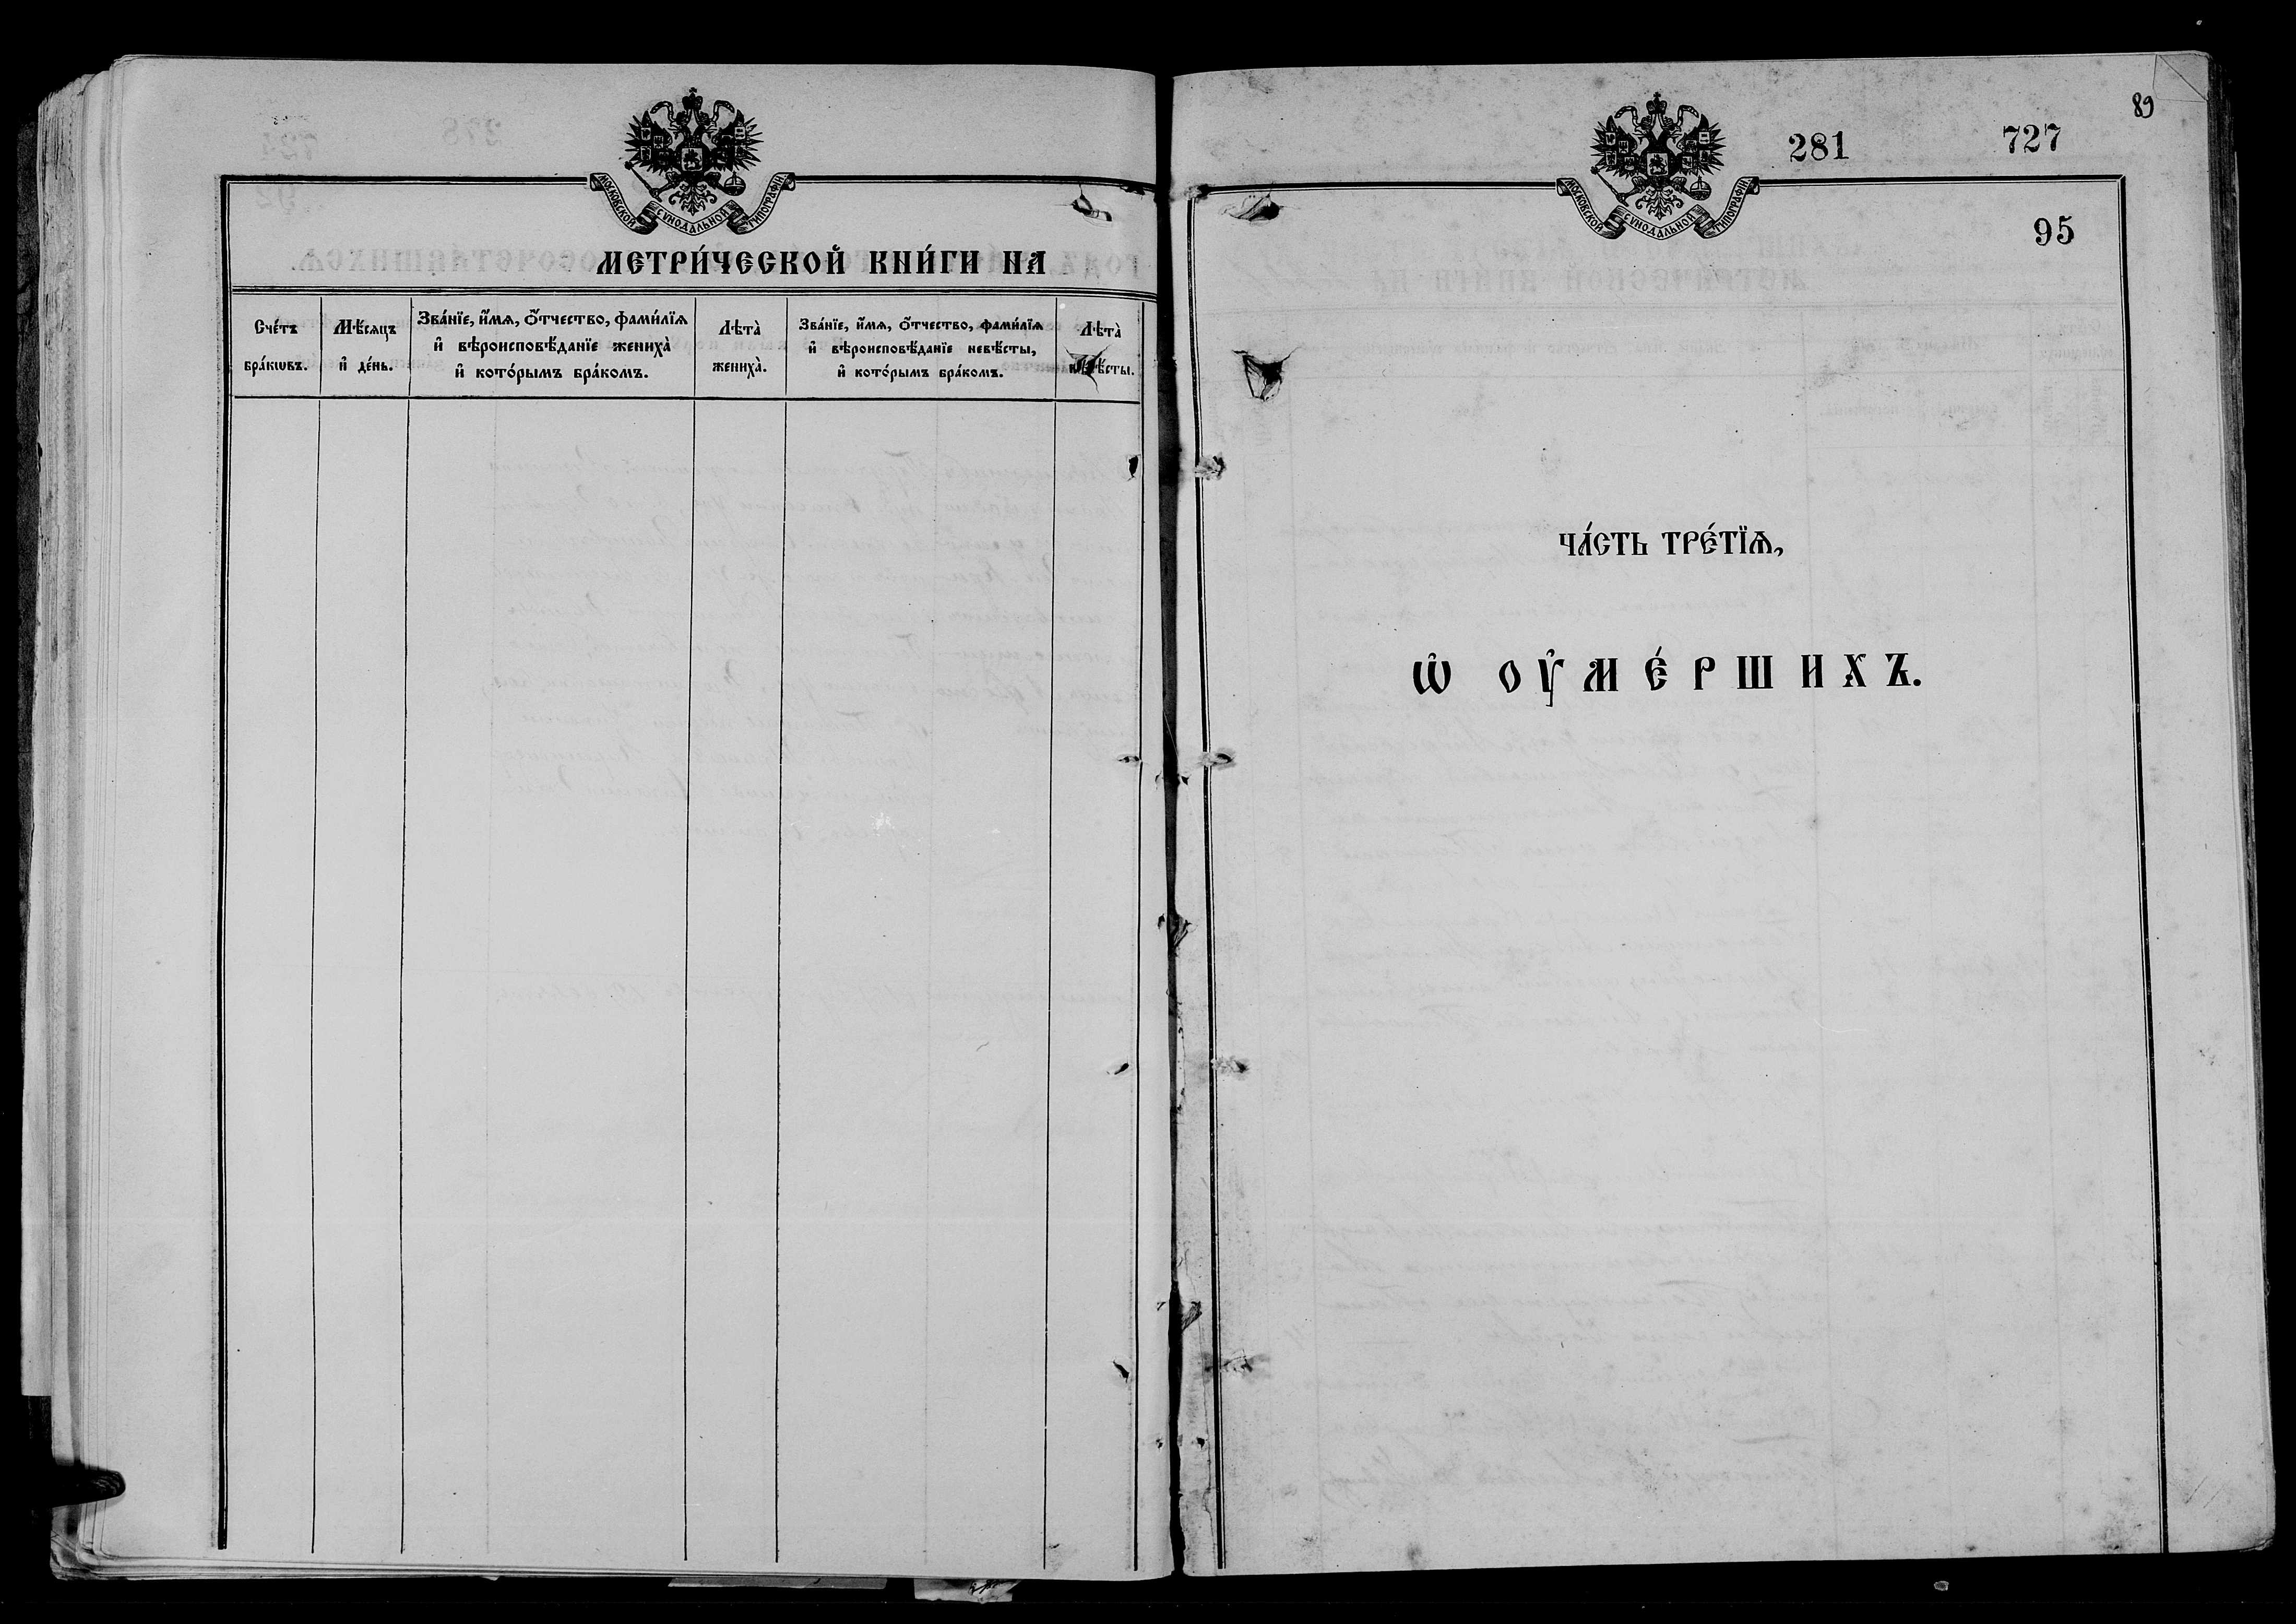 МОСКОВСКОЙ СѴНОДАЛЬНОЙ ТИПОГРАФІИ
МЕТРИ́ЧЕСКОЙ КНИ́ГИ НА
Сче́тъ
бра́кѡвъ.
Мѣ́сяцъ
и҆ де́нь.
Зва́нїе, и҆́мѧ, о҆́тчество, фами́лїѧ
и҆ вѣроисповѣ́данїе жениха̀
и҆ кото́рымъ бра́комъ.
Лѣта̀
жениха̀.
Зва́нїе, и҆́мѧ, о҆́тчество, фами́лїѧ
и҆ вѣроисповѣ́данїе невѣ́сты,
и҆ кото́рымъ бра́комъ.
Лѣта̀
невѣ́сты.
89
281 727
МОСКОВСКОЙ СѴНОДАЛЬНОЙ ТИПОГРАФІИ
95
ЧА́СТЬ ТРЕ́ТЇѦ,
Ѡ҆ ОУ҆МЕ́РШИХЪ.